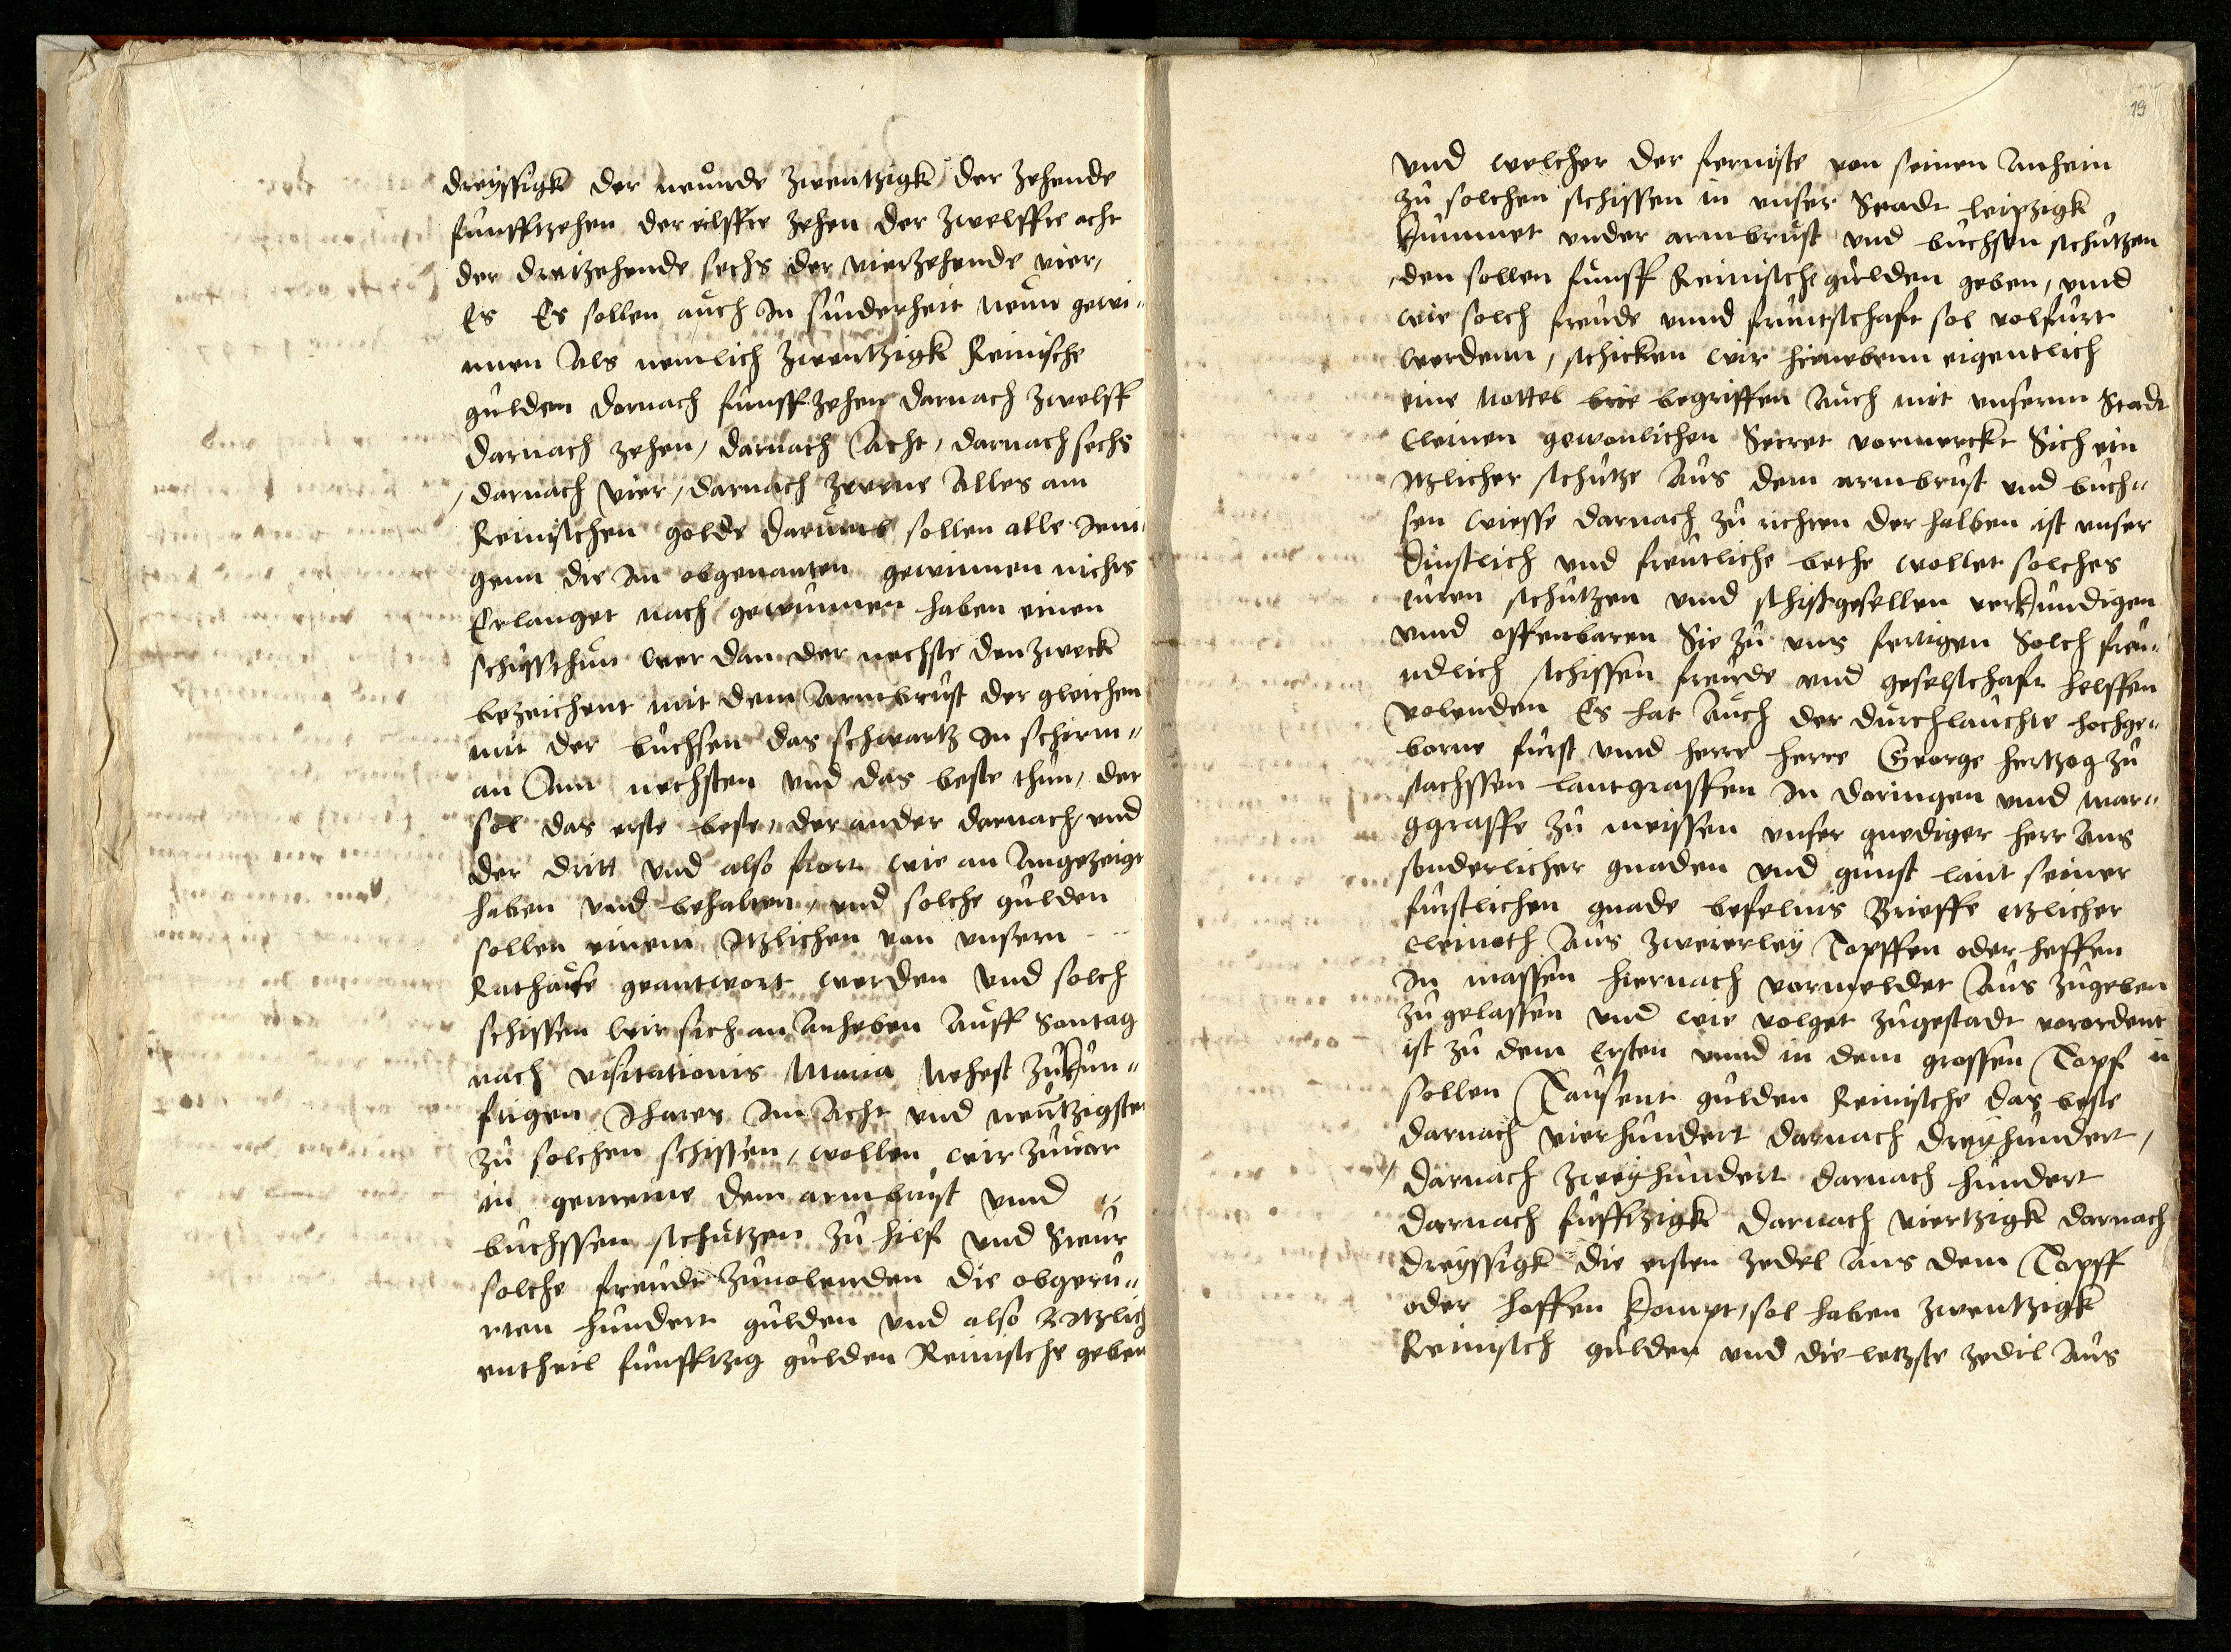 dreyssigk der neunde zwentzigk der zehende
funfftzehen der eilffte zehen der zwelffte acht
der dreizehende sechs der vierzehende vier,
Es Es sollen auch In sunderheit neun gewi-
nnen Als nemlich zwentzigk Reinische
gulden dornach funffzehen darnach zwelff
darnach zehen, darnach Acht, darnach sechs
, darnach vier, darnach zweene Alles am
Reinischen golde darumb sollen alle Ieni-
genn die Im obgenanten gewinnen nichts
Erlanget nach gewunnen haben einen
schusssthun wer dan der nechste den zweck
bezeichent mit dem Armbrust der gleichen
mit der buchsen das schwartz In schirm-
an Am nechsten vnd das beste thun, der
sol das erste beste, der ander darnach, vnd
der dritt vnd also fort wie an Angezeigt
haben vnd behalten, vnd solche gulden
sollen einem Itzlichen von vnserm
Rathause geantwort werden vnd solch
schissen wir sich an Anheben Auff Sontag
nach visitationis Maria Nehest zukun-
fftigen Ihares Im Acht vnd neutzigsten
zu solchen schissen, wollen wir zuuor
in gemeine dem armbrust vnnd
buchssen schutzen zu hilf vnd Steur
solche freude zuuolenden die obgeru-
rten hundert gulden vnd also Itzlich
entheil funfftzig gulden Reinische geben
19
vnd welcher der fernoste von seinen Anhein
zu solchen schissen in vnser Stadt leipzigk
kummet vnder armbrust vnd buchsen schutzen
, den sollen funff Reinische gulden geben, vnnd
wie solch freude vnnd fruntschaft sol volfurt
werdenn, schicken wir hienebenn eigentlich
eine Nottel brie begriffen Auch mit vnserm Stadt
Cleinen gewonlichen Secret vormerckt Sich ein
Itzlicher schutze Aus dem armbrust vnd buch-
sen wiesse darnach zu richten der halben ist vnser
dinstlich vnd freuntliche bethe wollet solches
euren schutzen vnnd schisgesellen verkundigen
vnnd offenbaren Sie zu vns fertigen Solch freu-
ndlich schissen freude vnd geselschaft helffen
volenden Es hat Auch der durchlauchte hochge-
borne furst vnnd herre herre George hertzog zu
sachssen lantgraffen In doringen vnnd mar-
ggraffe zu meissen vnser gnediger herr Aus
sonderlicher gnaden vnd gunst laut seiner
furstlichen gnade befelnis Brieffe etzlicher
cleinoth Aus zweierley Topffen oder heffen
In massen hiernach vormeldet Aus zugeben
zu gelassen vnd wie volget zugestadt vorordent
ist zu dem Ersten vnnd in dem grossen Topf in
sollen Tausent gulden Reinische das beste
darnach vierhundert darnach dreyhundert,
, darnach zweyhundert darnach hundert
darnach fufftzigk darnach viertzigk darnach
dreyssigk die ersten zedel Aus dem Topff
oder hoffen kompt, sol haben zwentzigk
Reinisch gulden vnd die letzste zedil Aus